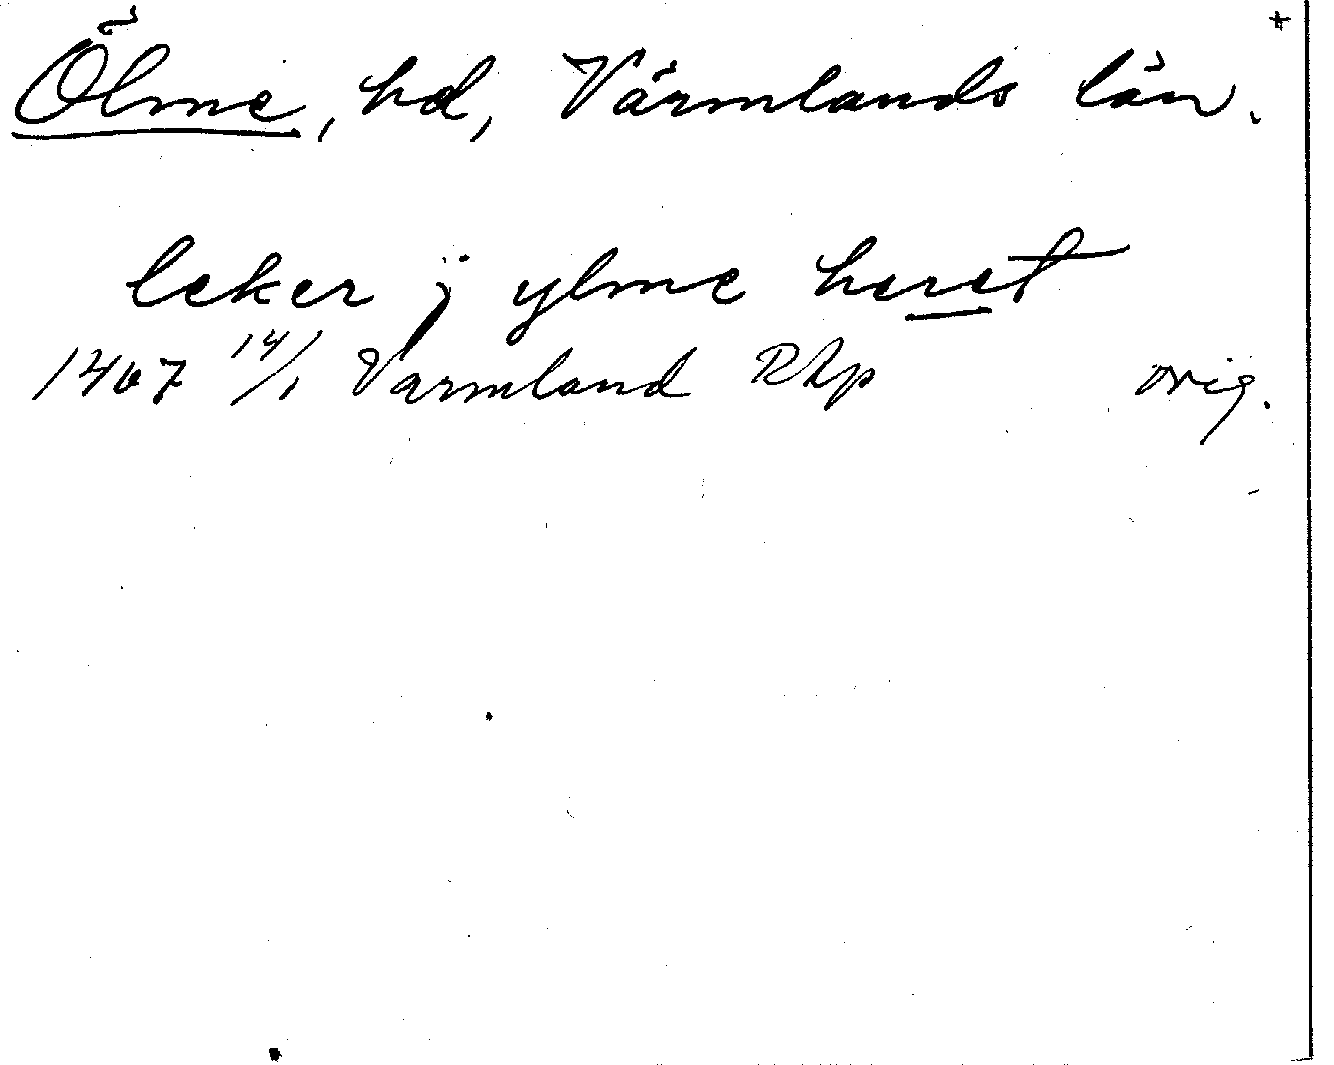 +
Ölme, hd, Värmlands län.
leker j ylme heret
1407 14/1 Varmland RAp orig.